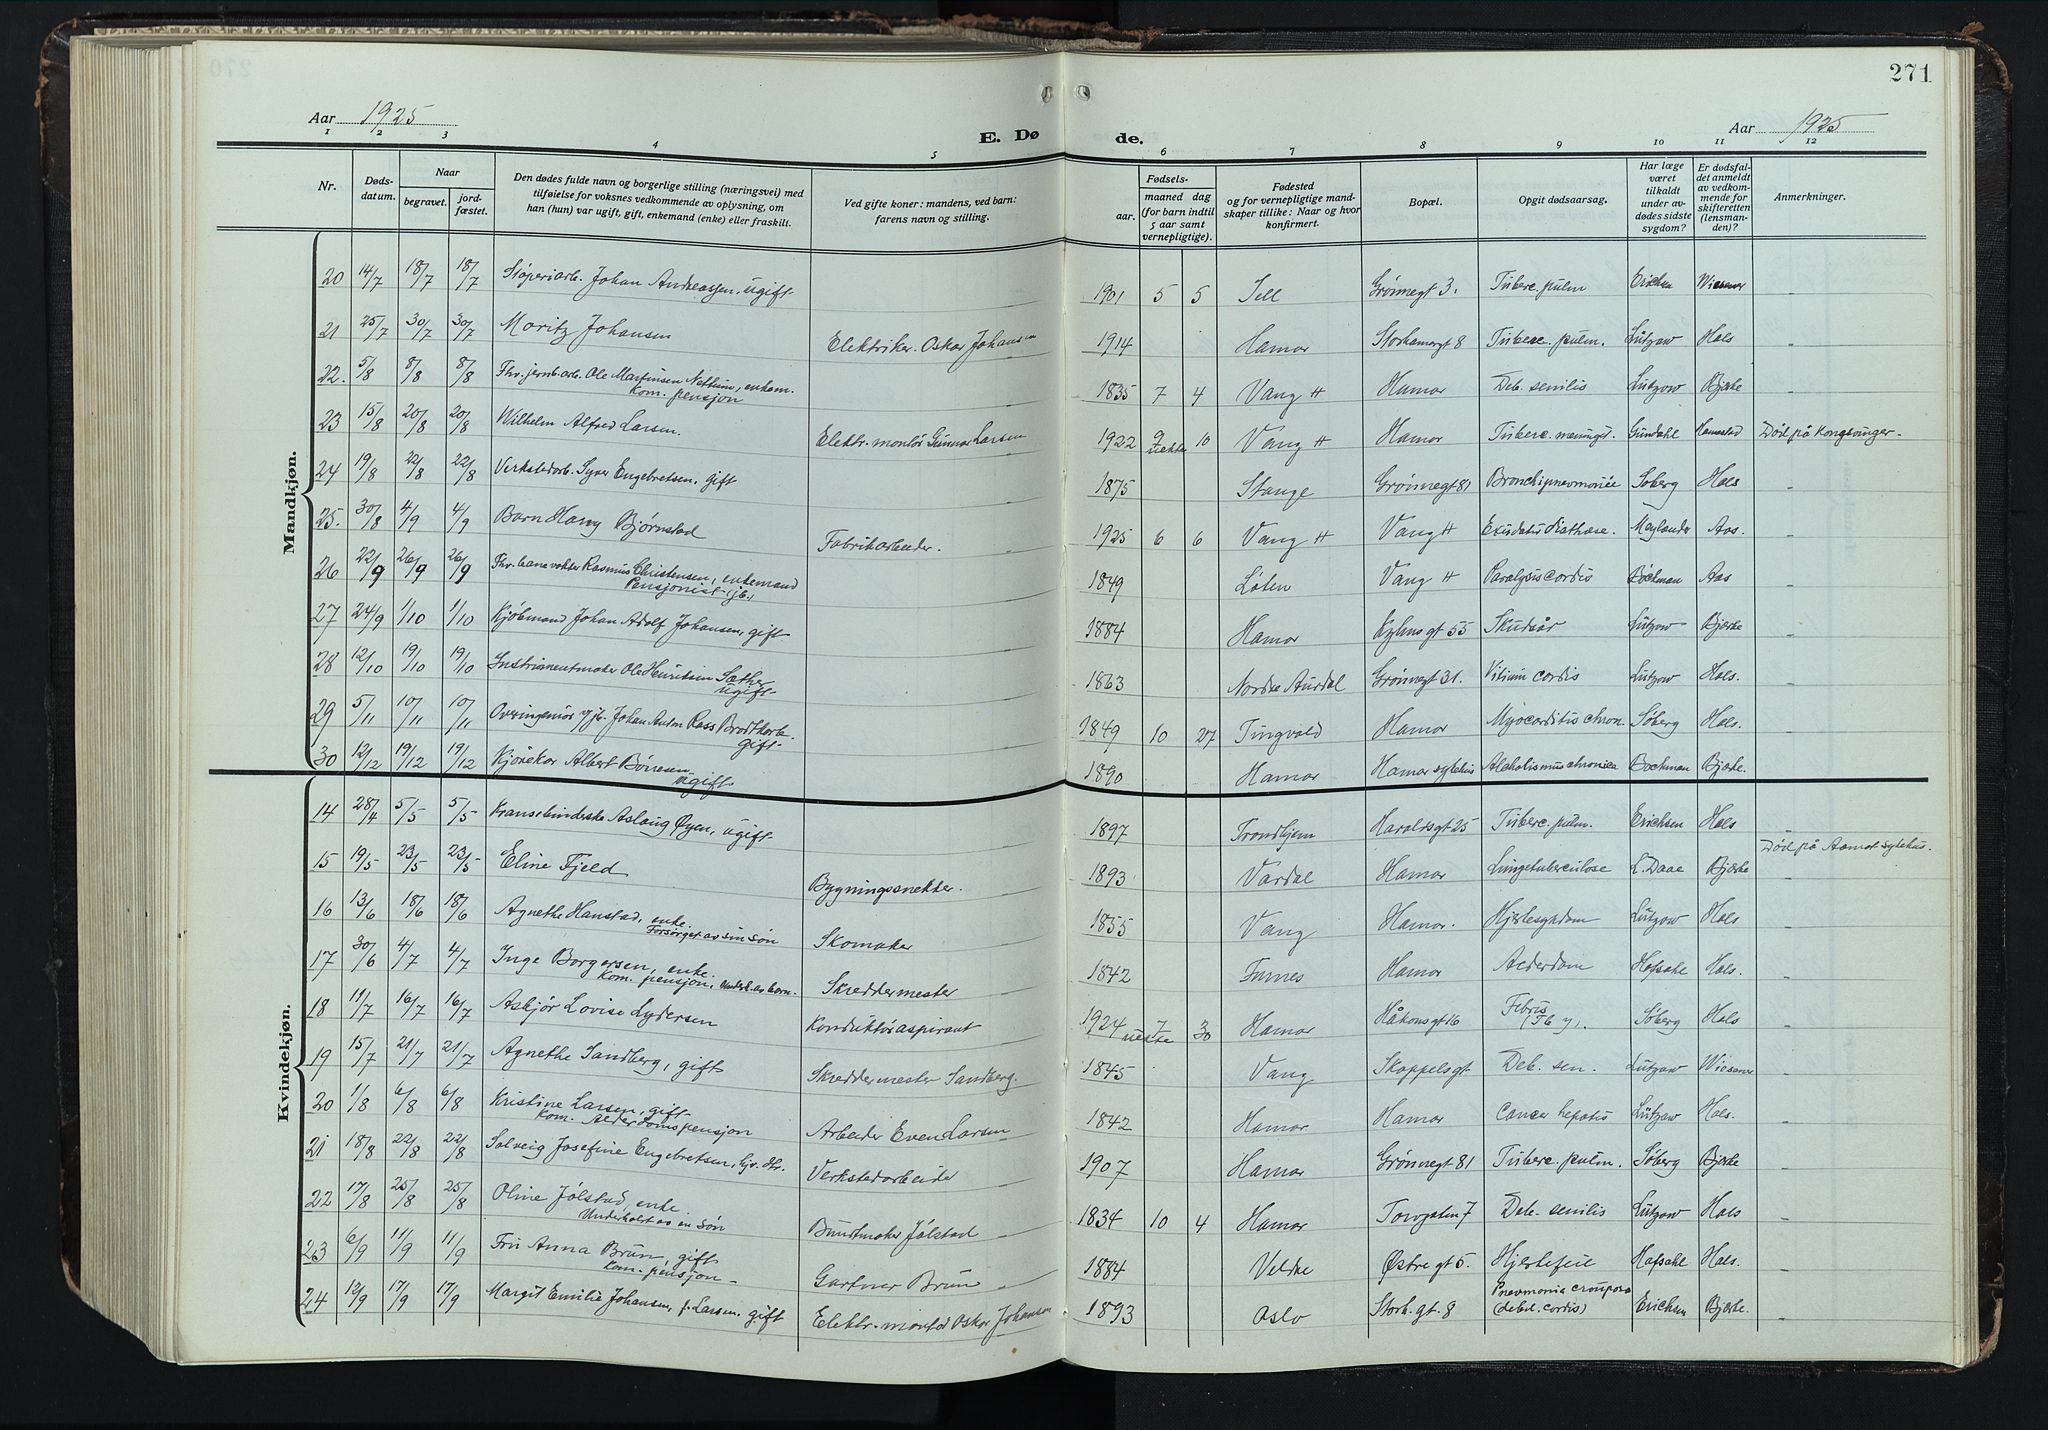 271
Aar 1925
E. Døde.
Aar 1925
1 2 3 4 5 6 7 8 9 10 11 12
Nr.
Dødsdatum.
Naar
begravet.
jordfæstet.
Den dødes fulde navn og borgerlige stilling (næringsvei) med
tilføielse for voksnes vedkommende av oplysning, om
han (hun) var ugift, gift, enkemand (enke) eller fraskilt.
Ved gifte koner: mandens, ved barn:
farens navn og stilling.
Fødsels-
aar.
maaned dag
(for barn indtil
5 aar samt
vernepligtige).
Fødested
og for vernepligtige mandskaper tillike: Naar og hvor
konfirmert.
Bopæl.
Opgit dødsaarsag.
Har læge
været
tilkaldt
under avdødes sidste
sygdom?
Er dødsfaldet anmeldt
av vedkommende for
skifteretten
(lensmanden)?
Anmerkninger.
Mandkjøn.
20 14/7 18/7 18/7 Støperiarb. Johan Andreassen, ugift 1901 5 5 Sell Grønnegt 3. Tuberc. pulm Erichsen Wiesener -
21 25/7 30/7 30/7 Moritz Johansen Elektriker Oskar Johansen 1914 Hamar Storhamargt 8 Tuberc. pulm. Lützow Hals -
22. 5/8 8/8 8/8 Fhv. jernb.arb. Ole Martinsen Nettum, enkem.
Kom. pensjon 1835 7 4 Vang H Hamar Deb. senilis Lützow Bjerke -
23 15/8 20/8 20/8 Wilhelm Alfred Larsen. Elektr. montør Gunnar Larsen 1922 9 10 Vang H Hamar Tuberc. meningit. Gundahl Hamestad Død på Kongsvinger -
24 19/8 22/8 22/8 Verkstedarb. Syver Engebretsen, gift 1875 Stange Grønnegt 81 Bronchipnevmonie Søberg Hals -
25. 30/8 4/9 4/9 Barn Harry Bjørnstad Fabrikarbeider. 1925 6 6 Vang H Vang H Exudativ diathese. Meylander Aas. -
26 22/9 26/9 26/9 Fhv. banevokter Rasmus Christensen, enkemand
Pensjonist (jb.) 1849 Løten Vang H Paralysis cordis Bockman Aas -
27 24/9 1/10 1/10 Kjøbmand Johan Adolf Johansen, gift 1884 Hamar Kyhnsgt 55 Skudsår Lützow Bjerke -
28 12/10 19/10 19/10 Instrumentmaker Ole Henriksen Sæther
ugift 1863 Nordre Aurdal Grønnegt 31. Vitium cordis Lützow Hals. -
29 5/11 10/11 10/11 Overingeniør v/jb. Johan Anton Rass Brodtkorb
gift 1849 10 27 Tingvold Hamar Myocarditis chron. Søberg Hals. -
30 12/12 19/12 19/12 Kjørekar Albert Børresen
ugift 1890 Hamar Hamar sykehus Alcoholismus chronica Bockman Bjerke. -
Kvindekjøn.
14 28/4 5/5 5/5 Kransebinderske Aslaug Øyen, ugift 1897 Trondhjem Haraldsgt 25 Tuberc. pulm. Erichsen Hals -
15 19/5 23/5 23/5 Eline Fjeld Bygningssnekker. 1893 Vardal Hamar Lungetuberculose L. Daae Bjerke Død på Aamot sykehus. -
16 13/6 18/6 18/6 Agnethe Hanstad, enke
Forsørget av sin søn Skomaker 1855 Vang Hamar. Hjertesykdom Lützow Hals -
17 30/6 4/7 4/7 Inge Borgersen, enke.
Kom. pensjon, underh. av barn. Skreddermester 1842 Furnes Hamar Alderdom Hofsæhl Hals. -
18 11/7 16/7 16/7 Askjør Lovise Lydersen Konduktøraspirant 1924 7 30 Hamar Håkonsgt 16 Febris Søberg Hals -
19 15/7 21/7 21/7 Agnethe Sandberg, gift Skreddermester Sandberg. 1845 Vang Skappelsgt. Deb. sen. Lützow Wiesener -
20 1/8 6/8 6/8 Kristine Larsen, gift
Kom. Alderdomspensjon Arbeider Even Larsen 1842 Hamar Hamar Cancer hepatis Lützow Hals. -
21 18/8 22/8 22/8 Solveig Josefine Engebretsen, hjv. dtr. Verkstedarbeider 1907 Hamar Grønnegt 81 Tuberc. pulm. Søberg Bjerke -
22 17/8 25/8 25/8 Oline Jølstad, enke.
Underholdt av en søn Buntmaker Jølstad 1834 10 4 Hamar Torvgaten 7 Deb. senilis Lützow Hals -
23 6/9 11/9 11/9 Fru Anna Brun, gift
Kom. pensjon - Gartner Brun 1884 Veldre Østregt 5. Hjertefeil Hofsæhl Hals. -
24 12/9 17/9 17/9 Margit Emilie Johansen, f. Larsen. gift Elektr. montør Oskar Johansen 1893 Oslo Storh.gt. 8 Pnevmonia crouposa
(debil. cordis) Erichsen Bjerke. -